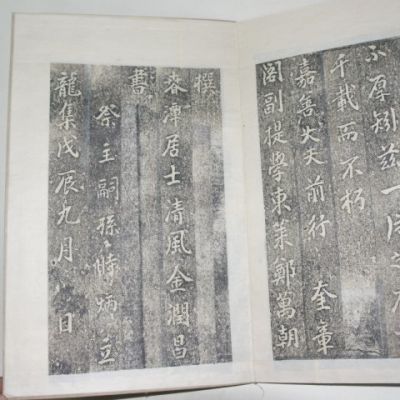 不厚矧茲一
千載而不朽
嘉善大夫前行 奎章
閣副提學東萊鄭萬朝
撰
春潭居士清風金潤昌
書
祭主嗣孫時炳立
龍集戊辰九月 日